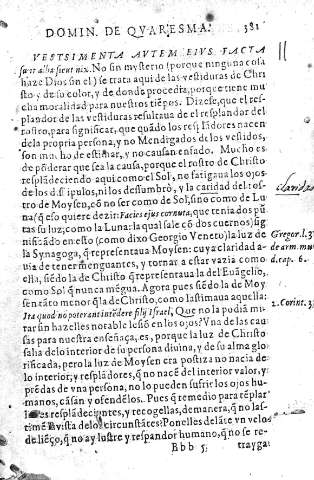 DOMIN. DE QVARESMA. 381
VESTSIMENTA AVTEM EIVS FACTA
sunt alba sicut nix. No sin mysterio (porque ninguna cosa
haze Dios sin el) se trata aqui de las vestiduras de Chri
sto y de su color, y de donde procedia, porque tiene mu
cha moralidad para nuestros tiēpos. Dizese, que el res-
plandor de las vestiduras resultaua de el resplandor del
rostro, para significar, que quādo los resplādores nacen
de la propria persona, y no Mendigados de los vestidos,
son mucho de estimar, y no causan enfado. Mucho es
de pōderar que sea la causa, porque el rostro de Christo
respládeciendo aqui como el Sol, no fatigaua los ojos
de los discipulos, ni los deslumbrò, y la caridad del ros-
tro de Moysen, cō no ser como de Sol, sino como de Lu
na (q̄ eso quiere dezir: Facies ejus cornuta, que tenia dos pū
tas su luz, como la Luna: la qual sale cō dos cuernos) sig-
nificādo en esto (como dixo Georgio Veneto) la luz de
la Synagoga, q̄ representaua Moysen: cuya claridad a-
uia de tener menguantes, y tornar a estar vazia como
ella, siēdo la de Christo q̄ representaua la del Euāgelio,
como Sol q̄ nunca mēgua. Agora pues siēdo la de Moy
sen tāto menor q̄ la de Christo, como lastimaua aquella:
Ita quod non poterant intēdere filij Israel, Que no la podiā mi-
rar sin hazelles notable lesiō en los ojos? Vna de las cau
sas para nuestra enseñaça, es, porque la luz de Christo
salia de lo interior de su persona diuina, y de su alma glo
rificada, pero la luz de Moysen era postiza no nacia de
lo interior, y respládores, q̄ no nacē del interior valor, y
prēdas de vna persona, no lo pueden sufrir los ojos hu-
manos, cāsan y ofendēlos. Pues q̄ remedio para tēplar
los es respládeciātes, y recogellas, demanera, q̄ no las-
timē la vista de los circunstātes? Ponelles delāte vn velos
de liēço, q̄ no ay lustre y respandor humano, q̄ no se re-
Bbb 5 trayga:
claridad
Gregor.l.3
de arm.mu
d.cap. 6.
2. Corint. 3